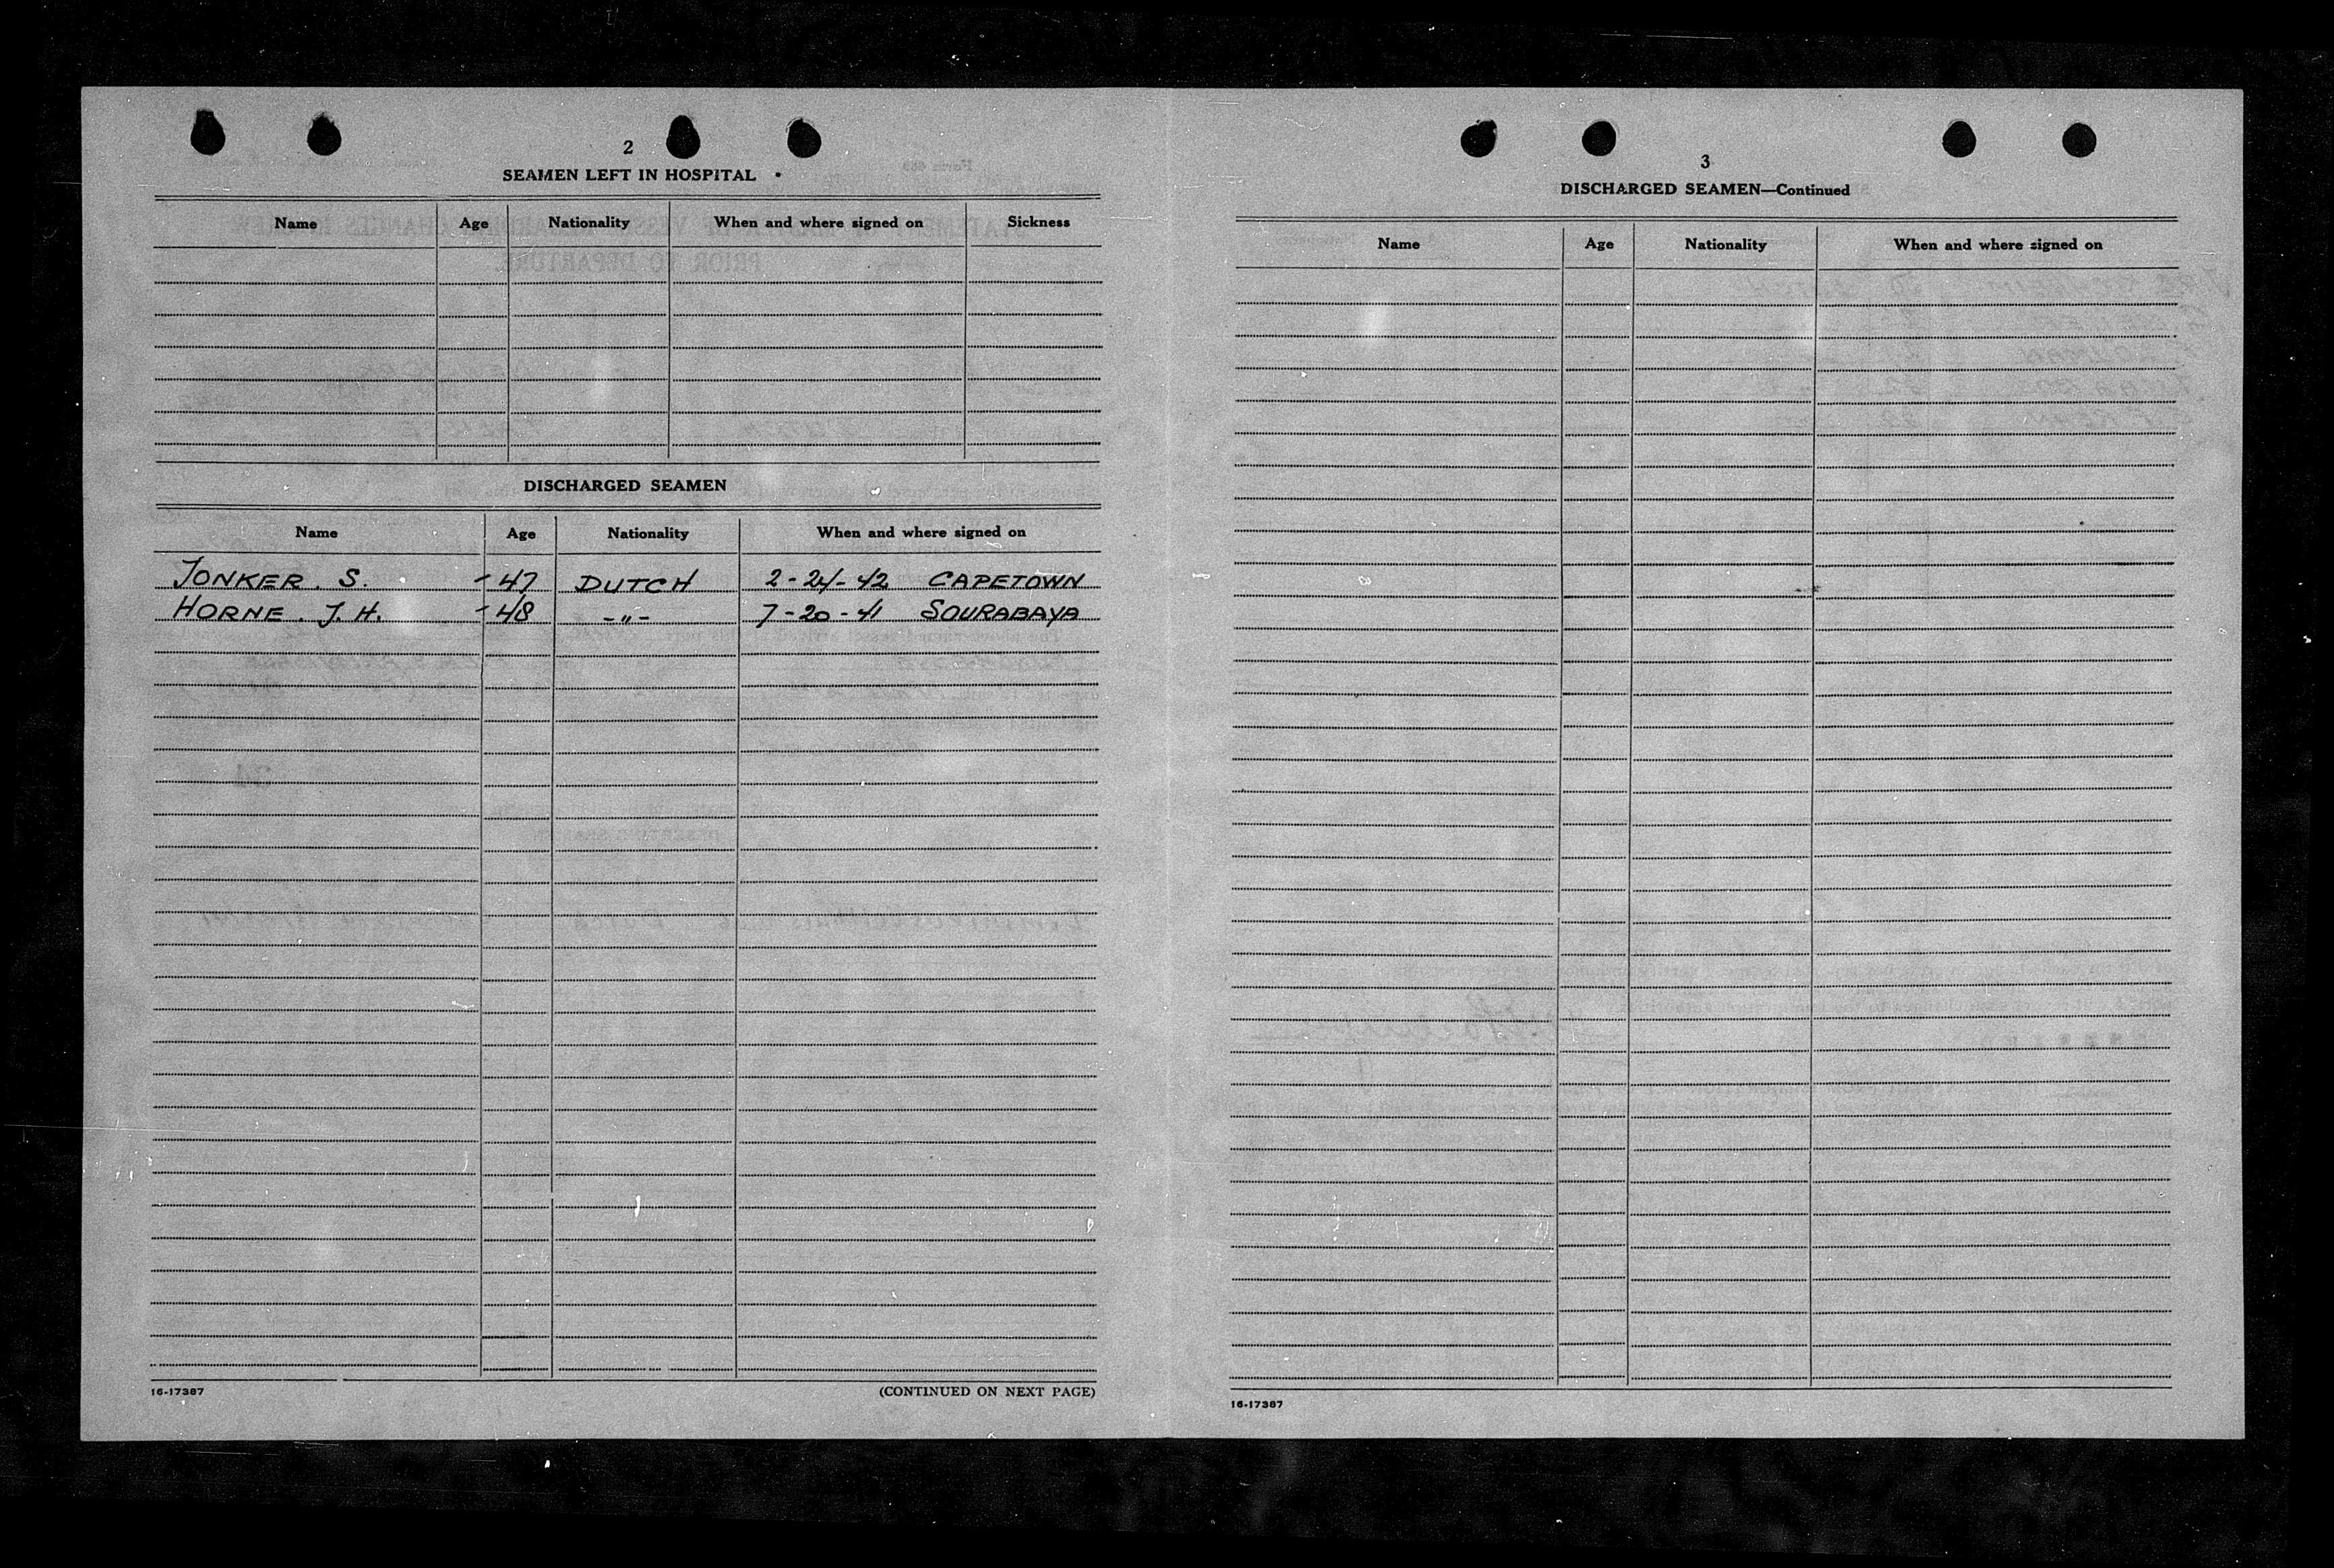 2
SEAMEN LEFT IN HOSPITAL
Name Age Nationality When and where signed on Sickness
DISCHARGED SEAMEN
Name Age Nationality When and where signed on
JONKER. S. - 47 DUTCH 2-24-42 CAPETOWN
HORNE. J. H. - 48 -"- 7-20-41 SOURABAYA
16-17387 (CONTINUED ON NEXT PAGE)
3
DISCHARGED SEAMEN—Continued
Name Age Nationality When and where signed on
16-17387